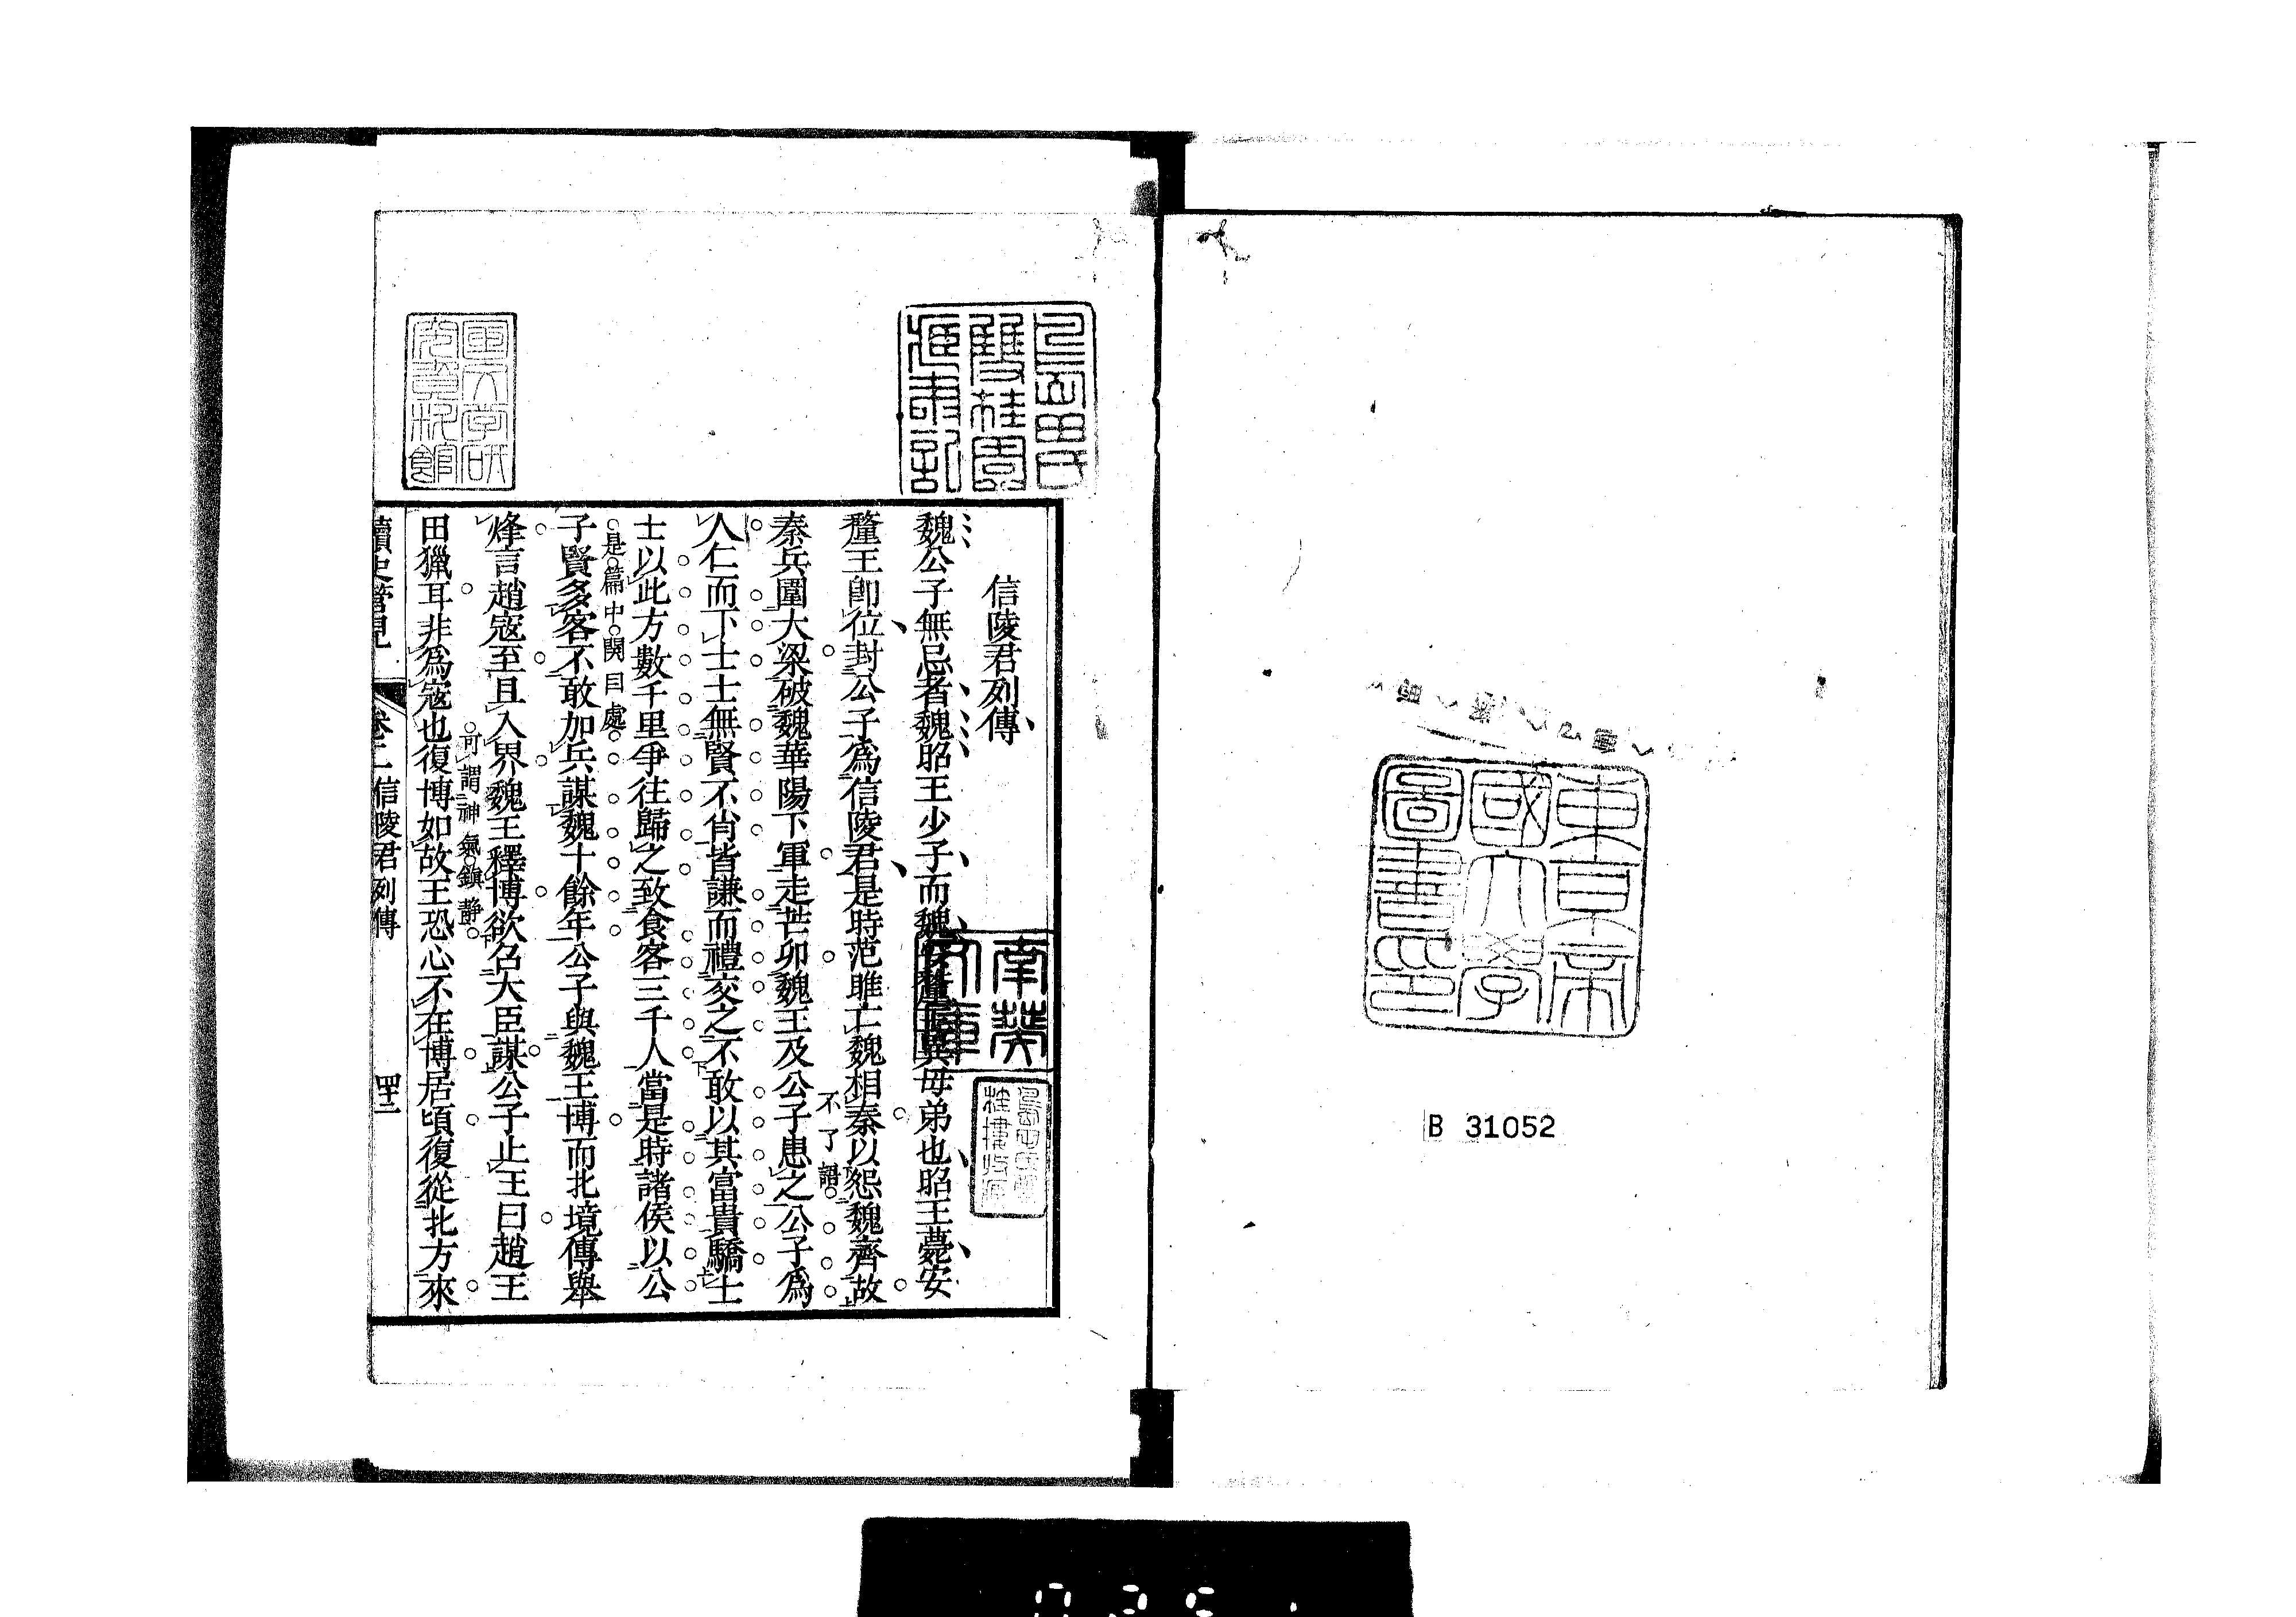 東京帝
國大學
圖書印
B 31052
雙桂園
南葵
文庫
信陵君列傳
魏公子無忌者魏昭王少子而魏安釐王異母弟也昭王薨安
釐王卽位封公子爲信陵君是時范雎亡魏相秦以怨魏齊故
不了語
秦兵圍大梁破魏華陽下軍走芒卯魏王及公子患之公子爲
人仁而下士士無賢不肖皆謙而禮交之不敢以其富貴驕士
士以此方數千里爭往歸之致食客三千人當是時諸侯以公
是篇中関目處
子賢多客不敢加兵謀魏十餘年公子與魏王博而北境傳舉
烽言趙寇至且入界魏王釋博欲召大臣謀公子止王曰趙王
可謂神氣鎭静
田獵耳非爲寇也復博如故王恐心不在博居頃復從北方來
讀史管見 卷二 信陵君列傳 四十二
國文学研
究資料館